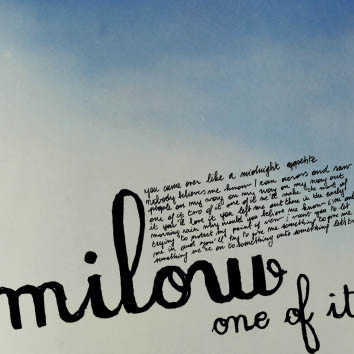 you came over like a midnight appetite
nobody believes me know I can across and saw
people on my way on my way on my way out
one of it two of it one of it make the
it you'll love it you left me out then in the early
morning rain why should you believe me know I'm out
trying to protect my point of view I want you to let
me in and you'll try to give me something to give me
something we're on to something onto something
milow
one of it